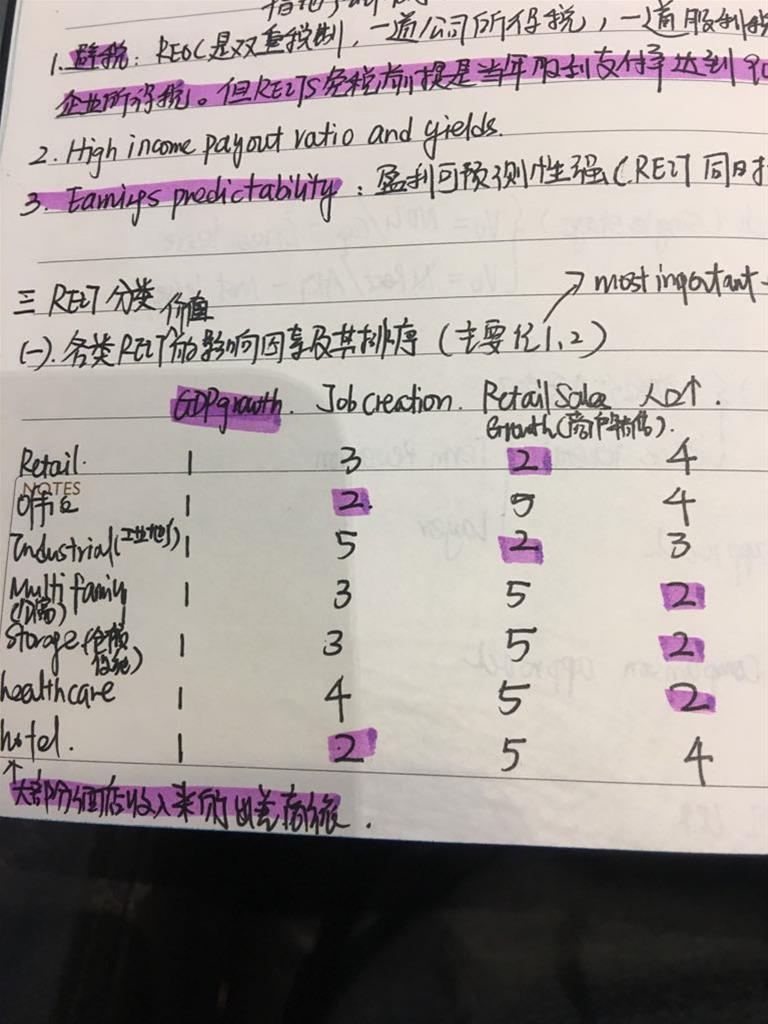 1. 避税：REOC是双重税制，一道公司所得税，一道股利税
企业所得税。但REITS免税前提是当年股利支付率达到90
2. High income payout ratio and yields.
3. Earnigs predictability：盈利可预测性强（REIT 同日
三 REIT 分类 价值
most important
(一). 各类REIT的影响因素及其排序（主要记1、2）
GDP growth. Job creation. Retail Sales 人口↑.
Growth(商户销售).
Retail. 1 3 2 4
NOTES
office 1 2. 5 4
Industrial(工业地产) 1 5 2 3
Multi family 1 3 5 2
Storage(仓储 1 3 5 2
healthcare 1 4 5 2
hotel. 1 2 5 4
↑大部分酒店收入来自出差商旅.